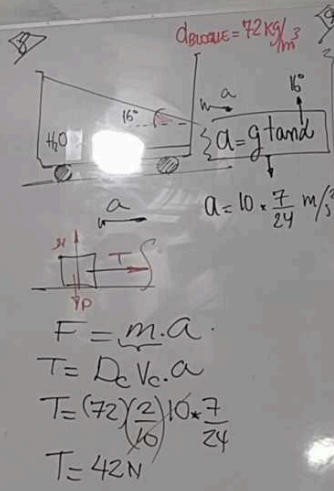 8
dBLOQUE = 72 kg/m³
16°
a
16°
H₂O
a = g tanα
a = 10 * 7/24 m/s
a
N
T
P
F = m.a.
T = Dc Vc . a
T = (72)(2/10)10 * 7/24
T = 42N